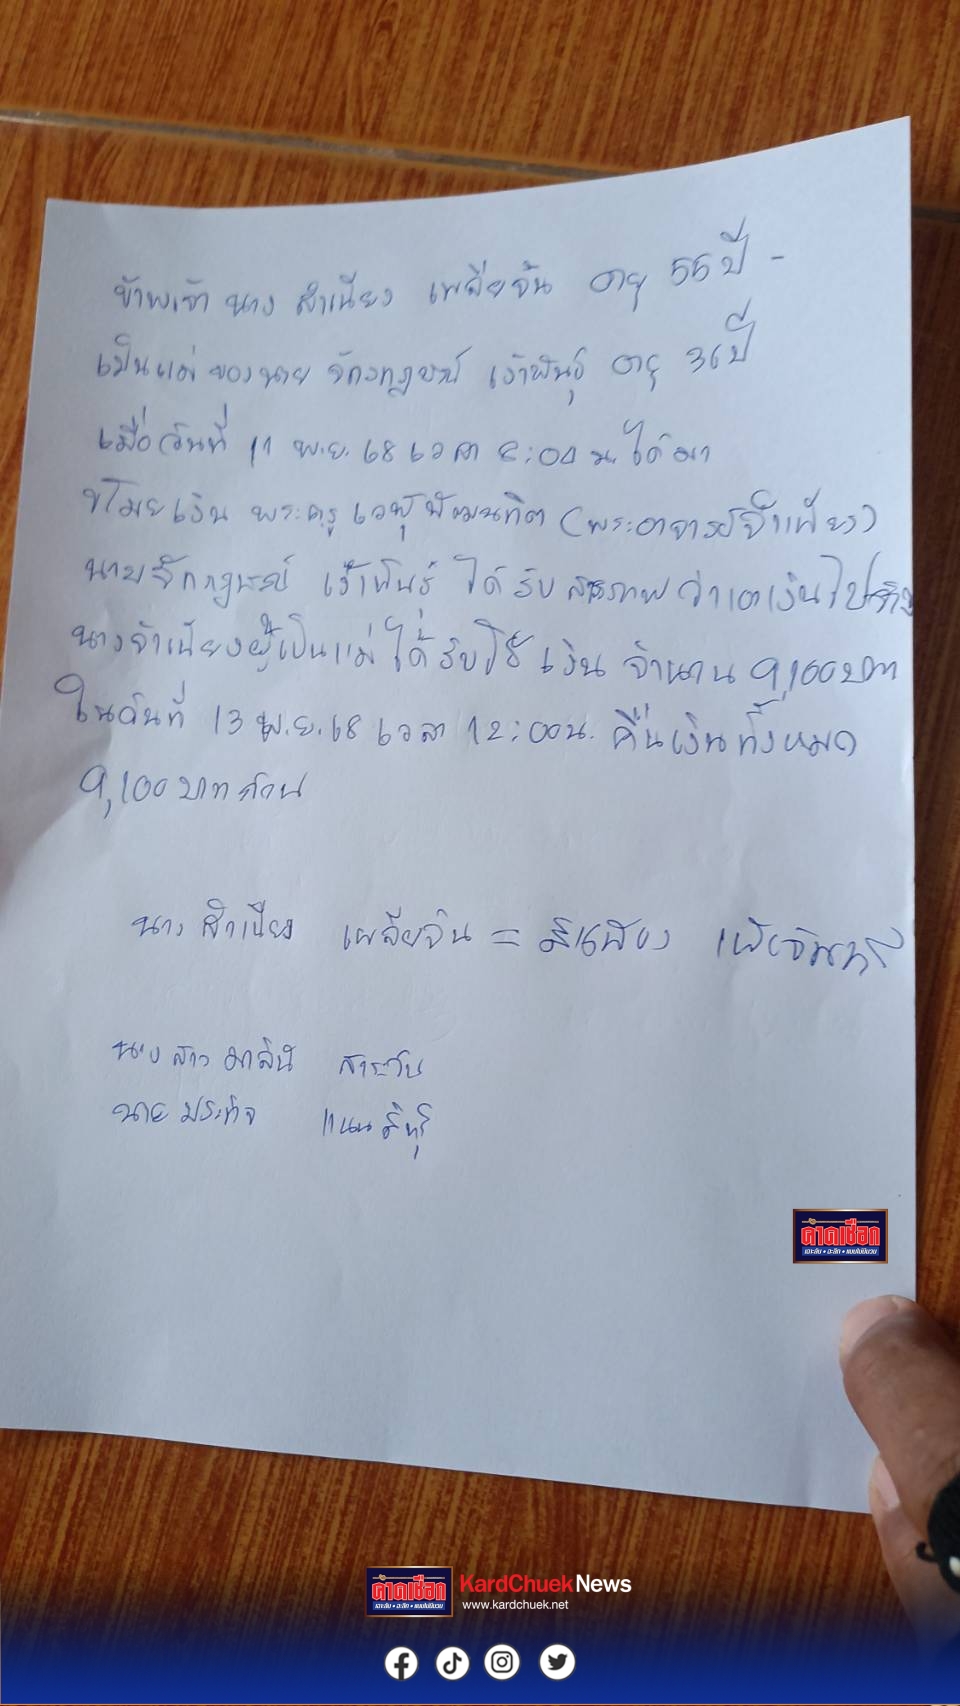 ข้าพเจ้า นาง สำเนียง เพลียจัน อายุ 55 ปี -
เป็นแม่ ของนาย จักรกฤษณ์ เจ้าพันธุ์ อายุ 36 ปี
เมื่อวันที่ 11 พ.ย. 68 เวลา :00 น. ได้มา
ขโมยเงิน พระครู (พระอาจารย์จำเนียร)
นายจักกฤษณ์ เจ้าพันธุ์ ได้รับสารภาพว่าเอาเงินไปจริง
นางจำเนียงผู้เป็นแม่ ได้รับใช้ เงิน จำนวน 9,100 บาท
ในวันที่ 13 พ.ย. 68 เวลา 12:00 น. คืนเงินทั้งหมด
9,100 บาทถ้วน
นาง สำเนียง เพลียจัน =
นางสาว มาลินี สาระวัน
นาย ประกิจ
คาดเชือก
คาดเชือก
KardChuek News
www.kardchuek.net